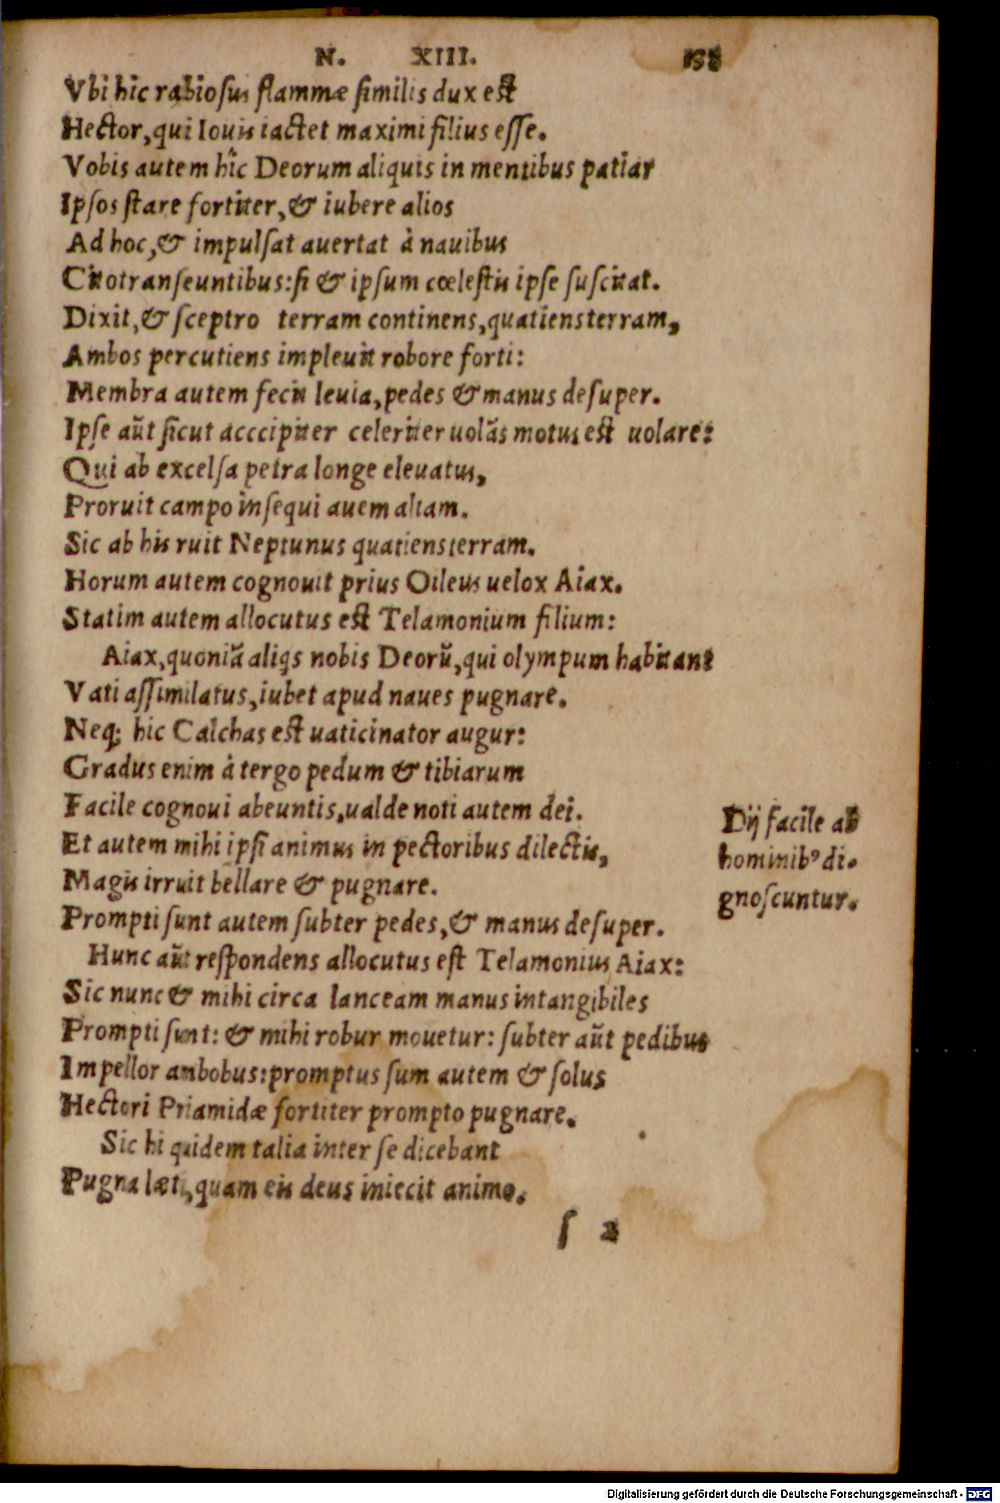 N. XIII.
Vbi hic rabiosus flammæ similis dux est
Hector, qui Iouis iactet maximi filius esse.
Vobis autem hîc Deorum aliquis in mentibus patiar
Ipsos stare fortiter, & iubere alios
Ad hoc, & impulsat auertat à nauibus
Citotranseuntibus: si & ipsum cœlestis ipse suscitat.
Dixit, & sceptro terram continens, quatiens terram,
Ambos percutiens impleuit robore forti:
Membra autem fecit leuia, pedes & manus desuper.
Ipse aũt sicut acccipiter celeriter uolãs motus est uolare:
Qui ab excelsa petra longe eleuatus,
Proruit campo insequi auem aliam.
Sic ab his ruit Neptunus quatiens terram.
Horum autem cognouit prius Oileus uelox Aiax.
Statim autem allocutus est Telamonium filium:
Aiax, quoniã aliqs nobis Deorũ, qui olympum habitant
Vati assimilatus, iubet apud naues pugnare.
Neq; hic Calchas est uaticinator augur:
Gradus enim à tergo pedum & tibiarum
Facile cognoui abeuntis, ualde noti autem dei.
Et autem mihi ipsi animus in pectoribus dilectis,
Magis irruit bellare & pugnare.
Prompti sunt autem subter pedes, & manus desuper.
Hunc aũt respondens allocutus est Telamonius Aiax:
Sic nunc & mihi circa lanceam manus intangibiles
Prompti sunt: & mihi robur mouetur: subter aũt pedibus
Impellor anbobus: promptus sum autem & solus
Hectori Priamidæ fortiter prompto pugnare.
Sic hi quidem talia inter se dicebant
Pugna læti, quam eis deus iniecit animo.
s 2
Dij facile ab
hominibꝰ di-
gnoscuntur.
Digitalisierung gefördert durch die Deutsche Forschungsgemeinschaft - DFG